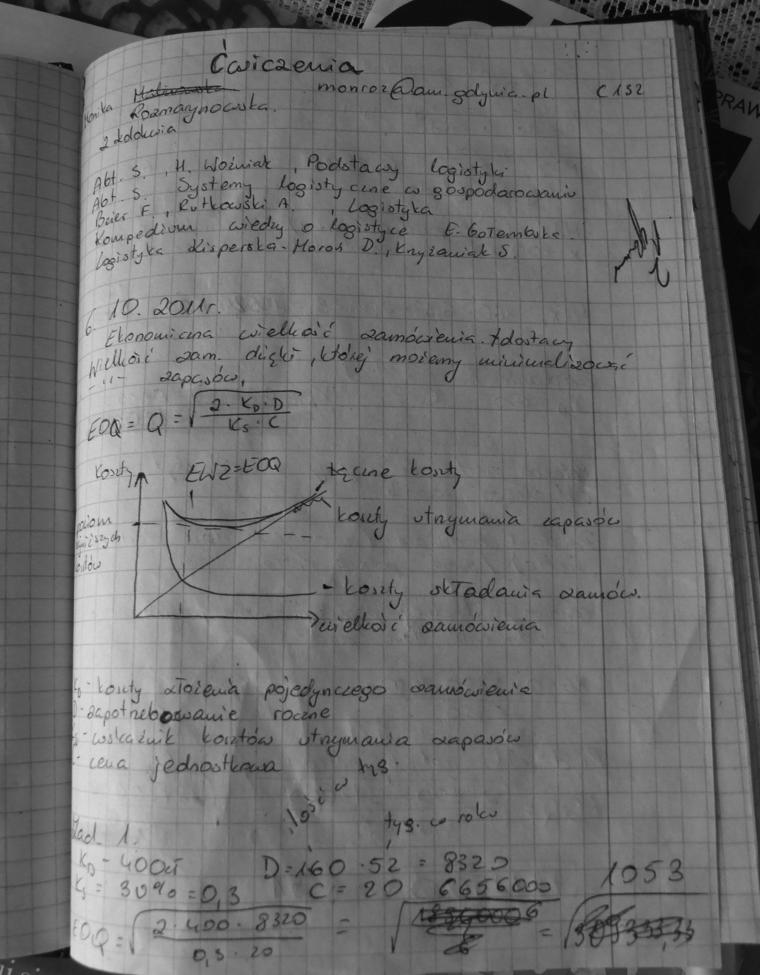 Ćwiczenia
Monika monroz@am.gdynia.pl C 132
Rozmarynowska.
2 kolokwia
Abt. S., H. Woźniak, Podstawy logistyki
Abt. S. Systemy logistyczne w gospodarowaniu
Beier F., Rutkowski A., Logistyka
Kompedium wiedzy o logistyce E. Gołembska.
logistyka Kisperska-Moroń D., Krzyżaniak S.
6. 10. 2011r.
Ekonomiczna wielkość zamówienia / dostawy
Wielkość zam. dzięki, której możemy minimalizować
-"- zapasów,
EOQ = Q = √(2 · K_D · D / K_S · C)
koszty EWZ=EOQ łączne koszty
poziom koszty utrzymania zapasów
- koszty składania zamów.
wielkość zamówienia
- koszty złożenia pojedynczego zamówienia
D - zapotrzebowanie roczne
- wskaźnik kosztów utrzymania zapasów
- cena jednostkowa
ilość w tyg.
tyg. w roku
Zad 1.
K_D - 400zł D = 160 · 52 = 8320
K_S = 30% = 0,3 C = 20 6656000 1053
EOQ = √(2 · 400 · 8320 / 0,3 · 20) = √(6) = √